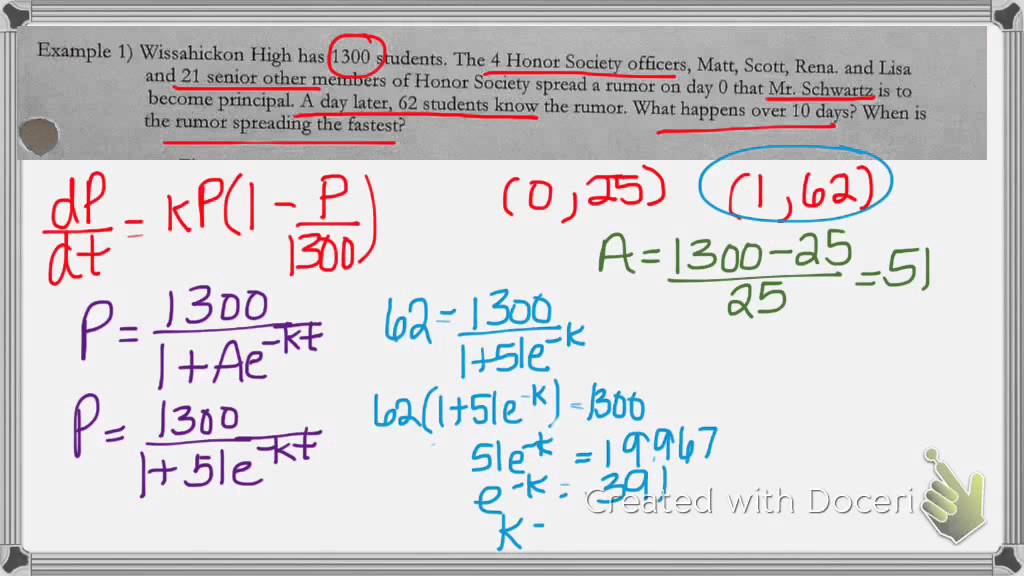 Example 1) Wissahickon High has 1300 students. The 4 Honor Society officers, Matt, Scott, Rena. and Lisa
and 21 senior other members of Honor Society spread a rumor on day 0 that Mr. Schwartz is to
become principal. A day later, 62 students know the rumor. What happens over 10 days? When is
the rumor spreading the fastest?
dP/dt = kP(1 - P/1300)
(0, 25) (1, 62)
A = (1300 - 25)/25 = 51
P = 1300/(1 + Ae^-kt)
62 = 1300/(1 + 51e^-k)
P = 1300/(1 + 51e^-kt)
62(1 + 51e^-k) = 1300
51e^-k = 19.967
e^-k = .391
k =
Created with Doceri